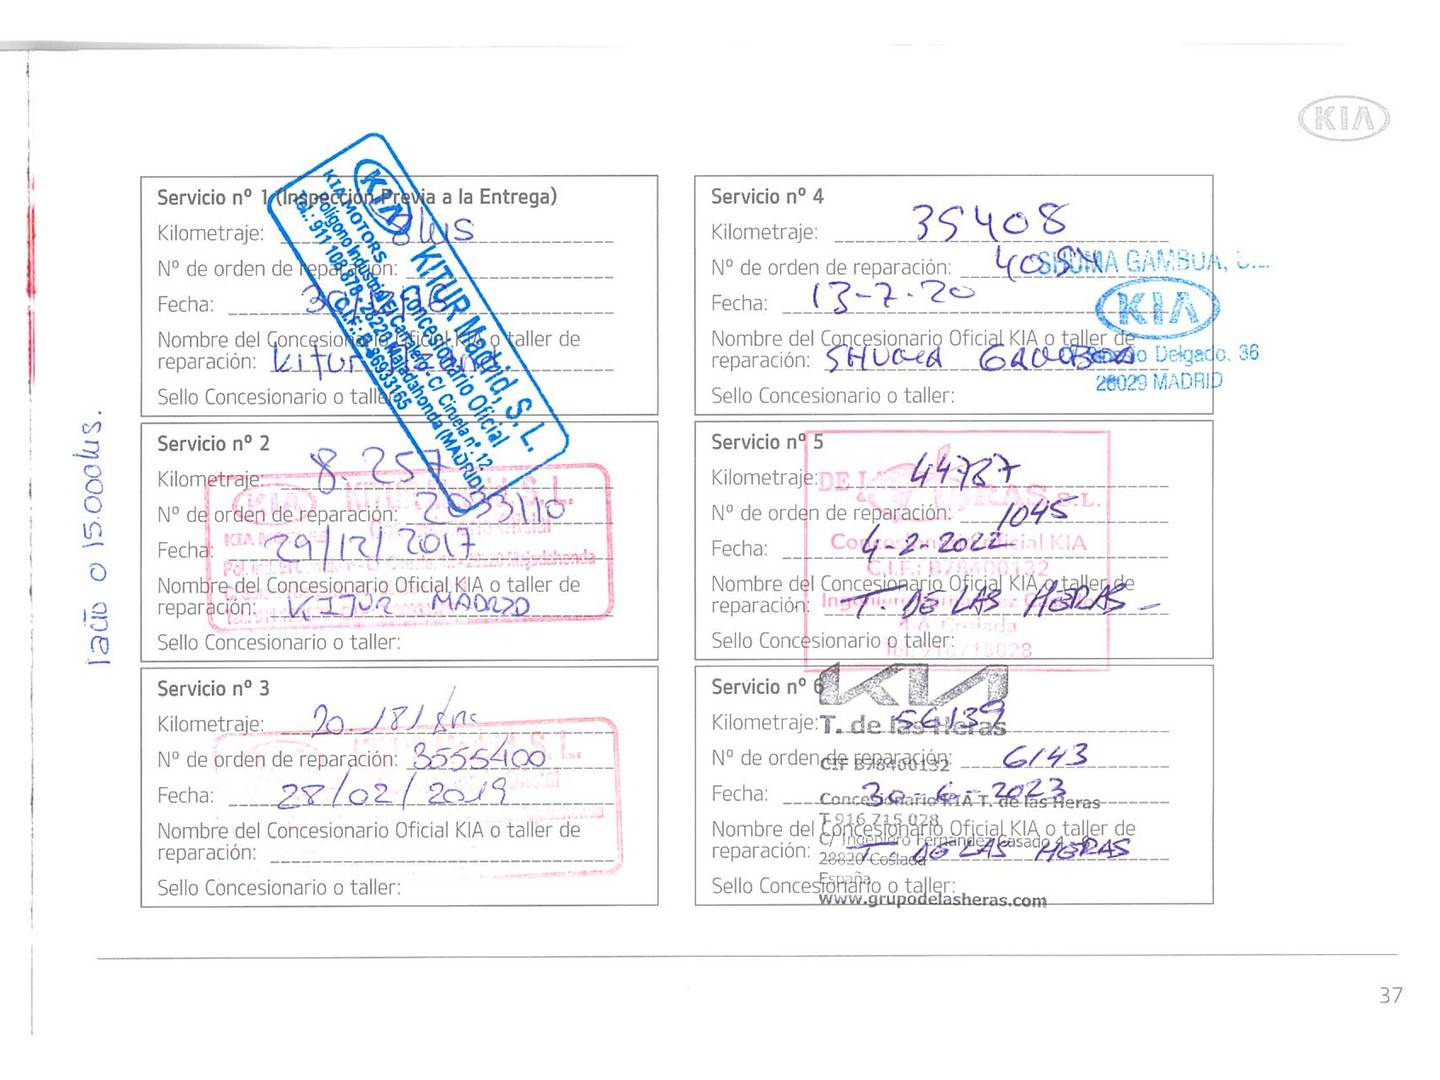 KIA
1 año o 15.000 kms.
Servicio nº 1 (Inspección Previa a la Entrega)
Kilometraje: 8 kms
Nº de orden de reparación:
Fecha:
Nombre del Concesionario Oficial KIA o taller de
reparación: Kitur
Sello Concesionario o taller:
KIA
KIA MOTORS
KITUR Madrid, S. L.
Concesionario Oficial
Polígono Industrial El Carralero - C/ Ciruela nº. 12
Tel.: 911 108 878 - 28220 Majadahonda (MADRID)
C.I.F.: B-86933165
Servicio nº 2
Kilometraje: 8.257
Nº de orden de reparación: 2033110
Fecha: 29/12/2017
Nombre del Concesionario Oficial KIA o taller de
reparación: KITUR MADRID
Sello Concesionario o taller:
KIA
Servicio nº 3
Kilometraje: 20.181 kms
Nº de orden de reparación: 3555400
Fecha: 28/02/2019
Nombre del Concesionario Oficial KIA o taller de
reparación:
Sello Concesionario o taller:
Servicio nº 4
Kilometraje: 35408
Nº de orden de reparación:
Fecha: 13-7-20
Nombre del Concesionario Oficial KIA o taller de
reparación:
Sello Concesionario o taller:
GAMBOA,
KIA
Delgado, 36
28029 MADRID
Servicio nº 5
Kilometraje: 44787
Nº de orden de reparación: 1045
Fecha: 4-2-2022
Nombre del Concesionario Oficial KIA o taller de
reparación: T. DE LAS HERAS
Sello Concesionario o taller:
DE LAS HERAS S.L.
Concesionario Oficial KIA
C.I.F.: B78400132
Coslada
Tel: 916715028
Servicio nº 6
Kilometraje: 56139
Nº de orden de reparación: 6143
Fecha: 30-6-2023
Nombre del Concesionario Oficial KIA o taller de
reparación: T. DE LAS HERAS
Sello Concesionario o taller:
KIA
T. de las Heras
CIF B78400132
Concesionario KIA T. de las Heras
T 916 715 028
C/ Ingeniero Fernandez Casado 4
28820 Coslada
España
www.grupodelasheras.com
37